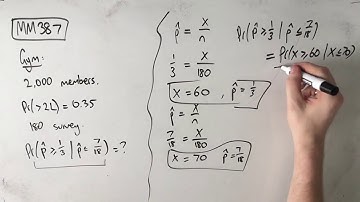 MM387
Gym:
2,000 members.
Pr(>2L) = 0.35
180 survey.
Pr(p̂ ≥ 1/3 | p̂ ≤ 7/18) = ?
p̂ = X/n
1/3 = X/180
X = 60, p̂ = 1/3
p̂ = X/n
7/18 = X/180
X = 70 p̂ = 7/18
Pr(p̂ ≥ 1/3 | p̂ ≤ 7/18)
= Pr(X ≥ 60 | X ≤ 70)
=